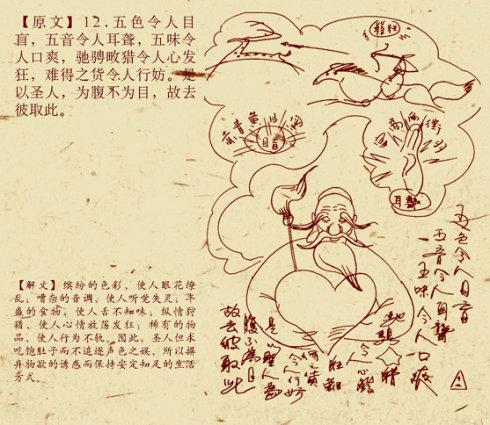 【原文】12.五色令人目
盲，五音令人耳聋，五味令
人口爽，驰骋畋猎令人心发
狂，难得之货令人行妨。是
以圣人，为腹不为目，故去
彼取此。
目盲
耳聾
五色令人目盲
五音令人耳聾
五味令人口爽
馳騁
獵
令人心發
狂難
得之貨
令人行妨
是以聖人為
腹不為目
故去彼取此
【解文】缤纷的色彩，使人眼花缭
乱；嘈杂的音调，使人听觉失灵；丰
盛的食物，使人舌不知味；纵情狩
猎，使人心情放荡发狂；稀有的物
品，使人行为不轨。因此，圣人但求
吃饱肚子而不追逐声色之娱，所以摒
弃物欲的诱惑而保持安定知足的生活
方式。